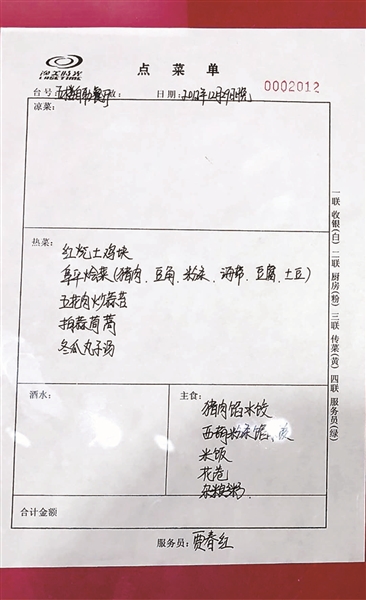 点菜单
0002012
台号: 五楼自助餐厅 日期: 2012年12月29日晚
凉菜:
热菜:
红烧土鸡块
阜平烩菜(猪肉、豆角、粉条、海带、豆腐、土豆)
五花肉炒蒜苔
拍蒜茼蒿
冬瓜丸子汤
酒水:
主食:
猪肉馅水饺
米饭
花卷
杂粮粥
合计金额
服务员: 贾春红
一联 收银(白) 二联 厨房(粉) 三联 传菜(黄) 四联 服务员(绿)